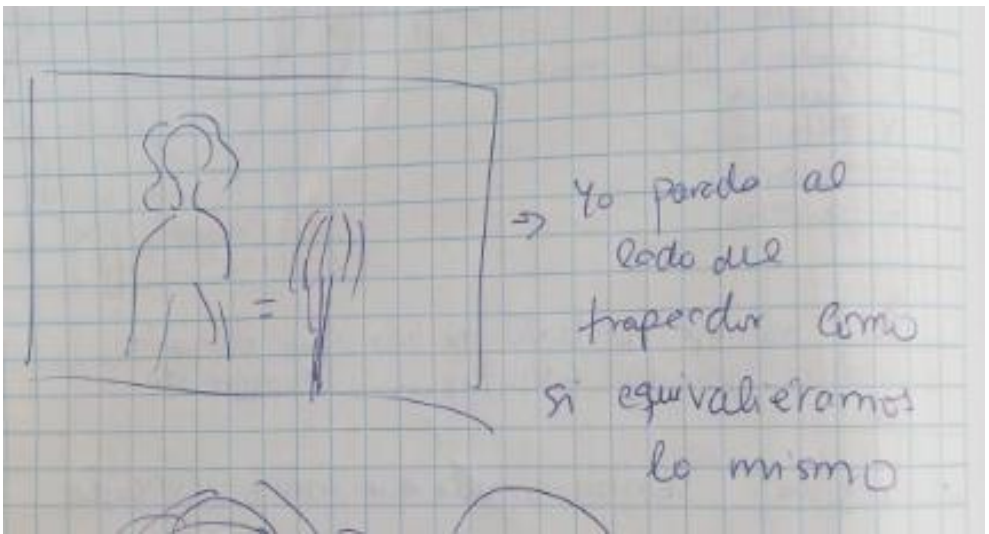 =
⇒ Yo parada al
lado del
trapeador como
si equivalieramos
lo mismo